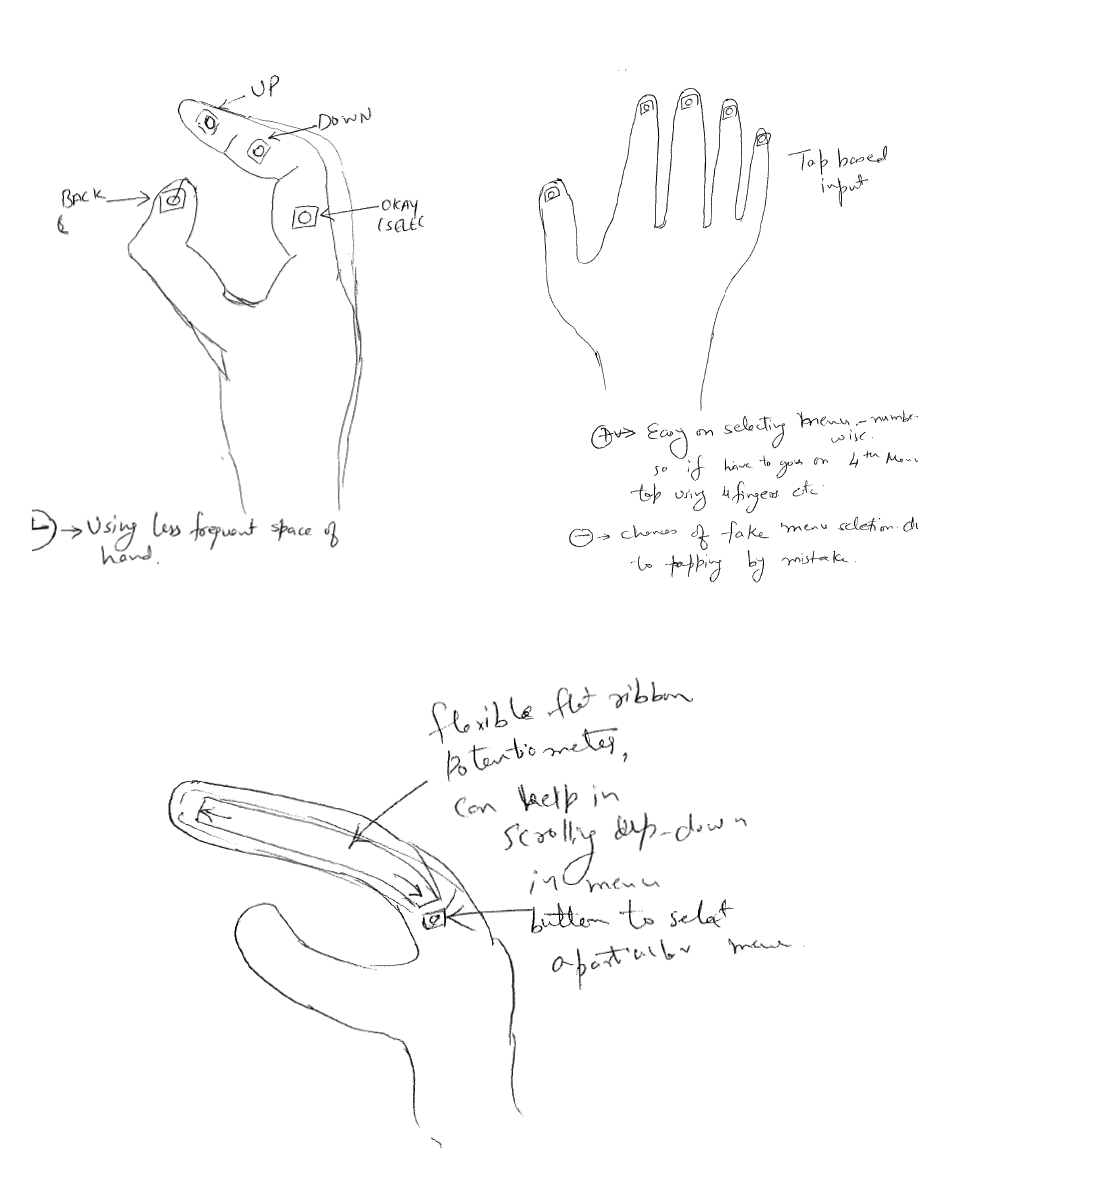 UP
DOWN
BACK
OKAY
(SELEC
→ Using less frequent space of
hand.
Tap based
input
+ve → Easy on selecting menu - numbe
wise.
so if have to go on 4th Men
tap using 4 fingers etc.
⊖ → chances of fake menu seletion d
to tapping by mistake.
flexible flat ribbon
Potentiometer,
can help in
scrolling up-down
in menu
button to select
a particular menu.